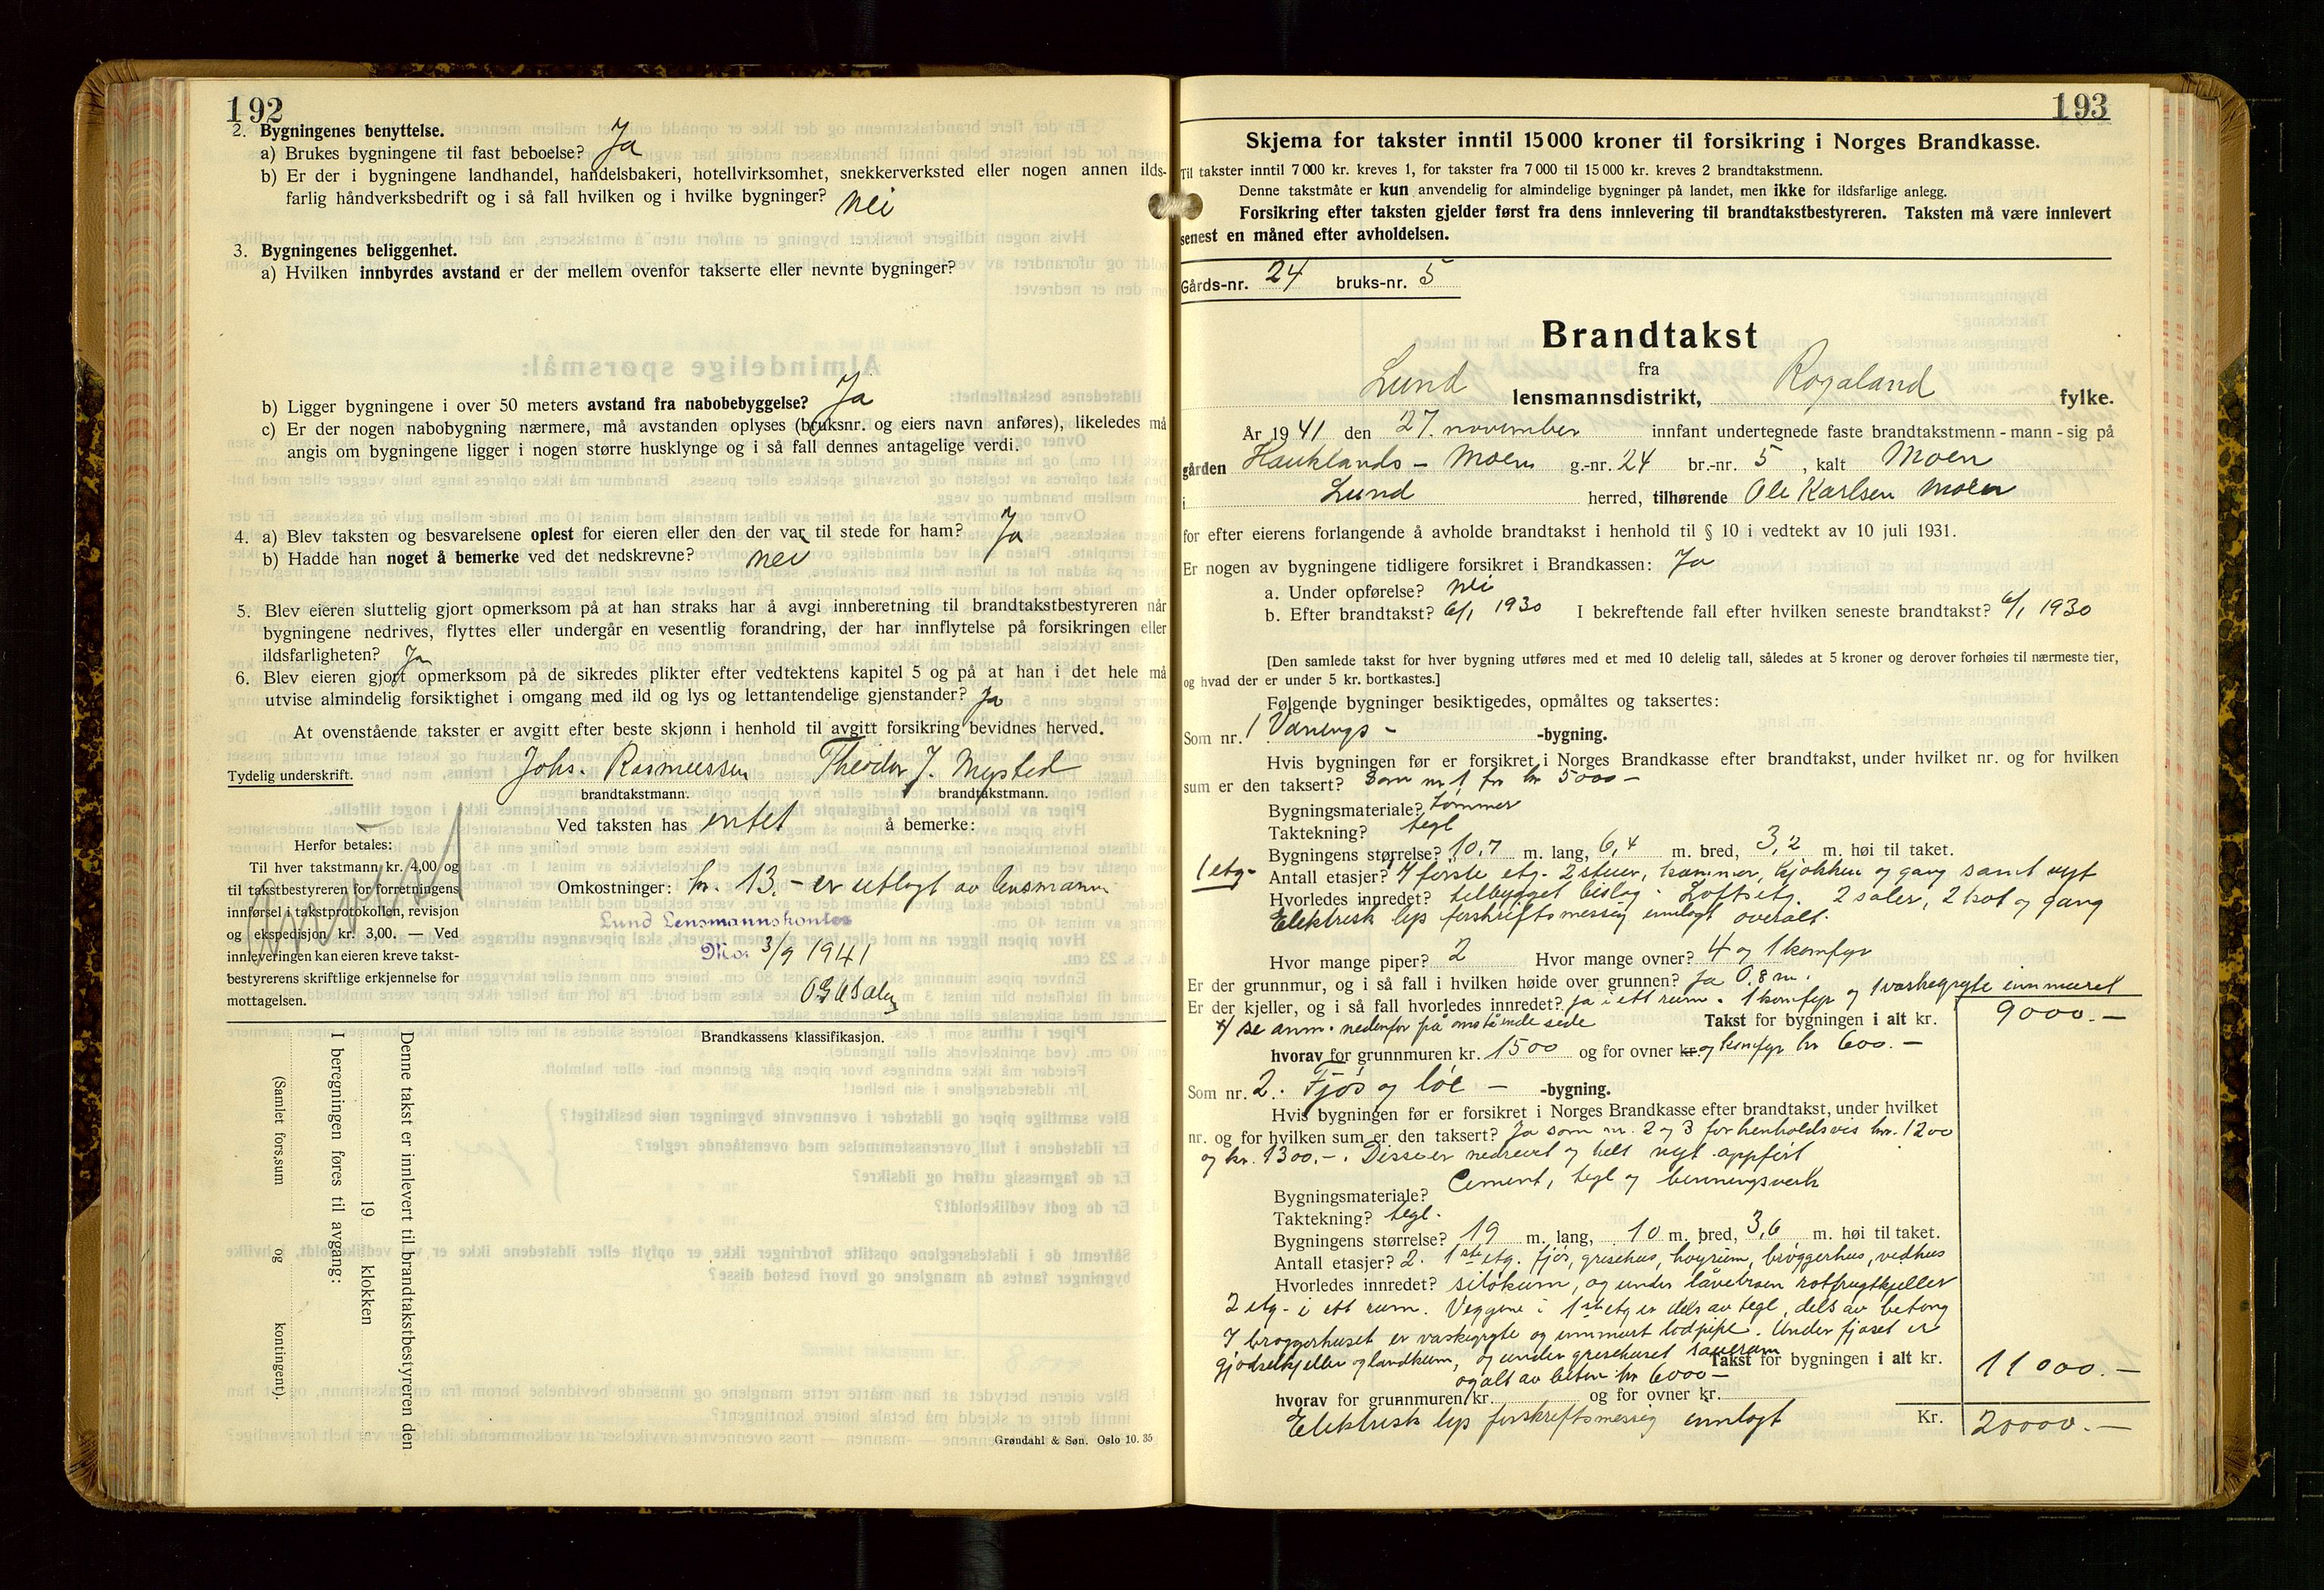 192
2. Bygningenes benyttelse.
a) Brukes bygningene til fast beboelse? Ja
b) Er der i bygningene landhandel, handelsbakeri, hotellvirksomhet, snekkerverksted eller nogen annen ilds-
farlig håndverksbedrift og i så fall hvilken og i hvilke bygninger? Nei
3. Bygningenes beliggenhet.
a) Hvilken innbyrdes avstand er der mellem ovenfor takserte eller nevnte bygninger?
b) Ligger bygningene i over 50 meters avstand fra nabobebyggelse? Ja
c) Er der nogen nabobygning nærmere, må avstanden oplyses (bruksnr. og eiers navn anføres), likeledes må
angis om bygningene ligger i nogen større husklynge og i så fall dennes antagelige verdi.
4. a) Blev taksten og besvarelsene oplest for eieren eller den der var til stede for ham? Ja
b) Hadde han noget å bemerke ved det nedskrevne? Nei
5. Blev eieren sluttelig gjort opmerksom på at han straks har å avgi innberetning til brandtakstbestyreren når
bygningene nedrives, flyttes eller undergår en vesentlig forandring, der har innflytelse på forsikringen eller
ildsfarligheten? Ja
6. Blev eieren gjort opmerksom på de sikredes plikter efter vedtektens kapitel 5 og på at han i det hele må
utvise almindelig forsiktighet i omgang med ild og lys og lettantendelige gjenstander? Ja
At ovenstående takster er avgitt efter beste skjønn i henhold til avgitt forsikring bevidnes herved.
Tydelig underskrift. Johs. Rasmussen Theodor J. Mysted
brandtakstmann. brandtakstmann.
Ved taksten has intet å bemerke:
Herfor betales:
Til hver takstmann kr. 4,00 og
til takstbestyreren for forretningens
innførsel i takstprotokollen, revisjon
og ekspedisjon kr. 3,00. — Ved
innleveringen kan eieren kreve takst-
bestyrerens skriftlige erkjennelse for
mottagelsen.
Omkostninger: kr. 13.- er utlagt av lensmann
Lund Lensmannskontor
Moi 3/9 1941
Brandkassens klassifikasjon.
Denne takst er innlevert til brandtakstbestyreren den
19 klokken
I beregningen føres til avgang:
(Samlet fors.sum og kontingent).
Grøndahl & Søn. Oslo 10. 35
193
Skjema for takster inntil 15 000 kroner til forsikring i Norges Brandkasse.
Til takster inntil 7 000 kr. kreves 1, for takster fra 7 000 til 15 000 kr. kreves 2 brandtakstmenn.
Denne takstmåte er kun anvendelig for almindelige bygninger på landet, men ikke for ildsfarlige anlegg.
Forsikring efter taksten gjelder først fra dens innlevering til brandtakstbestyreren. Taksten må være innlevert
senest en måned efter avholdelsen.
Gårds-nr. 24 bruks-nr. 5
Brandtakst
fra
Lund lensmannsdistrikt, Rogaland fylke.
År 1941 den 27. november innfant undertegnede faste brandtakstmenn - mann - sig på
gården Hauklands - Moen g.-nr. 24 br.-nr. 5, kalt Moen
i Lund herred, tilhørende Ole Karlsen Moen
for efter eierens forlangende å avholde brandtakst i henhold til § 10 i vedtekt av 10 juli 1931.
Er nogen av bygningene tidligere forsikret i Brandkassen: Ja
a. Under opførelse? Nei
b. Efter brandtakst? 6/1 1930 I bekreftende fall efter hvilken seneste brandtakst? 6/1 1930
[Den samlede takst for hver bygning utføres med et med 10 delelig tall, således at 5 kroner og derover forhøies til nærmeste tier,
og hvad der er under 5 kr. bortkastes.]
Følgende bygninger besiktigedes, opmåltes og taksertes:
Som nr. 1 Vånings - -bygning.
Hvis bygningen før er forsikret i Norges Brandkasse efter brandtakst, under hvilket nr. og for hvilken
sum er den taksert? Som nr 1 for kr 5000 -
Bygningsmateriale? Tømmer
Taktekning? tegl
Bygningens størrelse? 10,7 m. lang, 6,4 m. bred, 3,2 m. høi til taket.
1 etg- Antall etasjer? * første etg. 2 stuer, kammer, kjøkken og gang samt nytt
Hvorledes innredet? tilbygget bislag. Loftsetg. 2 saler, 2 kot og gang
Elektrisk lys forskriftsmessig innlagt overalt.
Hvor mange piper? 2 Hvor mange ovner? 4 og 1 komfyr
Er der grunnmur, og i så fall i hvilken høide over grunnen? Ja 0,8 m.
Er der kjeller, og i så fall hvorledes innredet? ja i ett rum. 1 komfyr og 1 vaskegryte innmuret
* se anm. nedenfor på omstående side Takst for bygningen i alt kr. 9000.-
hvorav for grunnmuren kr. 1500 og for ovner kr. og komfyr kr 600.-
Som nr. 2. Fjøs og løe - -bygning.
Hvis bygningen før er forsikret i Norges Brandkasse efter brandtakst, under hvilket
nr. og for hvilken sum er den taksert? Ja som nr. 2 og 3 for henholdsvis kr. 1200
og kr. 1300.-. Disse er nedrevet og helt nyt oppført
Bygningsmateriale? Cement, tegl og binningsverk
Taktekning? tegl.
Bygningens størrelse? 19 m. lang, 10 m. bred, 3,6 m. høi til taket.
Antall etasjer? 2. 1ste etg. fjøs, grisehus, høyrum, brøggerhus, vedhus
Hvorledes innredet? silokum, og under låvebroen rotfrugtkjeller
2 etg- i ett rum. Veggene i 1ste etg er dels av tegl, dels av betong
I brøggerhuset er vaskegryte og innmurt lodpipe. Under fjøset er
gjødselkjeller og landkum, og under grisehuset
Takst for bygningen i alt kr. 11000.-
og alt av beton kr 6000 -
hvorav for grunnmuren kr. og for ovner kr.
Elektrisk lys forskriftsmessig innlagt Kr. 20000.-